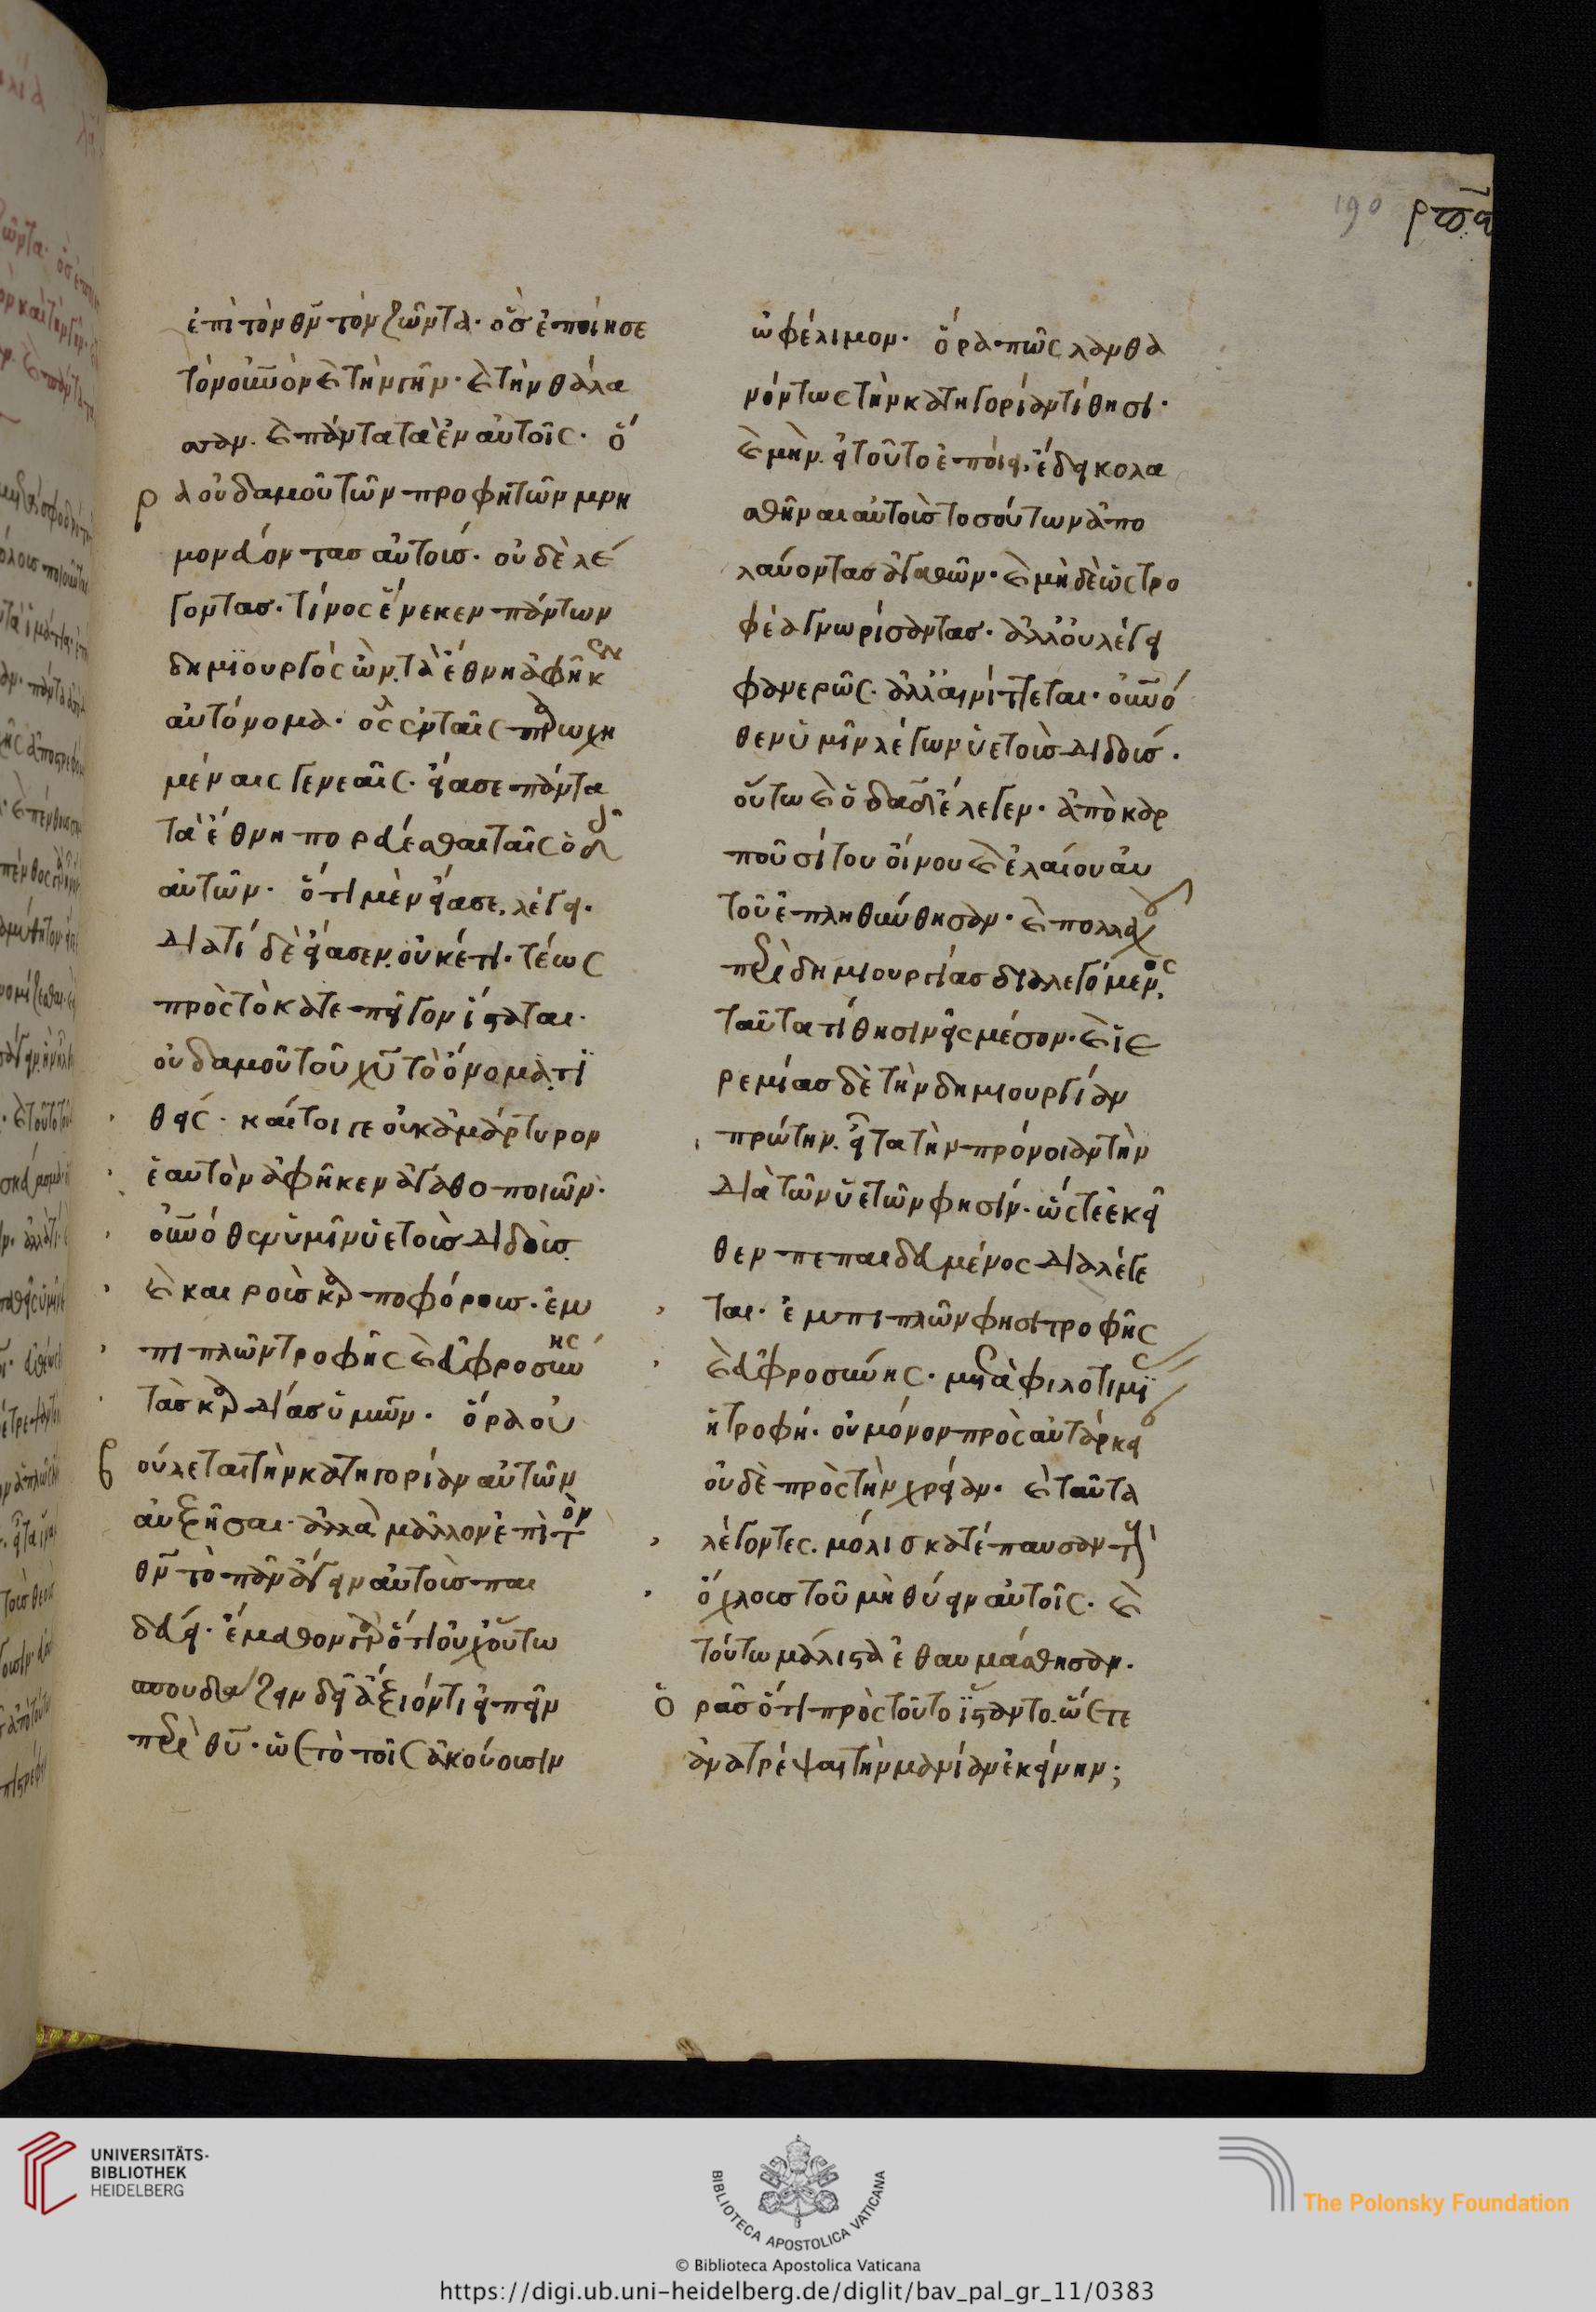 190 ρϟα
ἐπὶ τὸν θῦ τὸν ζῶντα· ὃς ἐποίησε
τὸν οὐνὸν καὶ τὴν γῆν· καὶ τὴν θάλα
σσαν. καὶ πάντα τὰ ἐν αὐτοῖς· ὅ
ρα οὐδαμοῦ τῶν προφητῶν μνη
μονεύοντας αὐτοὺς· οὐδὲ λέ
γοντας· τίνος ἕνεκεν πάντων
δημιουργὸς ὢν. τὰ ἔθνη ἀφῆκεν
αὐτόνομα· ὃς ἐν ταῖς παρωχη
μέναις γενεαῖς· εἴασε πάντα
τὰ ἔθνη πορεύεσθαι ταῖς ὁδοῖς
αὐτῶν· ὅτι μὲν εἴασε, λέγει·
διατί δὲ εἴασεν. οὐκέτι· τέως
πρὸς τὸ κατεπεῖγον ἵσταται·
οὐδαμοῦ τοῦ χῦ τὸ ὄνομα τι
θείς· καίτοιγε οὐκ ἀμάρτυρον
ἑαυτὸν ἀφῆκεν ἀγαθοποιῶν·
οὐνόθεν ὑμῖν ὑετοὺς διδοὺς
καὶ καιροὺς καρποφόρους· ἐμ
πιπλῶν τροφῆς καὶ εὐφροσύνης
τὰς καρδίας ὑμῶν· ὅρα οὐ
βούλεται τὴν κατηγορίαν αὐτῶν
αὐξῆσαι· ἀλλὰ μᾶλλον ἐπὶ τὸν
θν τὸ πᾶν ἄγειν αὐτοὺς παι
δεύει· ἔμαθον γὰρ ὅτι οὐχ οὕτω
σπουδάζειν δεῖ ἄξιόν τι εἰπεῖν
περὶ θυ· ὡς τὸ τοῖς ἀκούουσιν
ὠφέλιμον· ὅρα πῶς λανθα
νόντως τὴν κατηγορίαν τίθησι·
καὶ μὴν. εἰ τοῦτο ἐποίει. ἔδει κολα
σθῆναι αὐτοὺς τοσούτων ἀπο
λαύοντας ἀγαθῶν· καὶ μηδὲ ὡς τρο
φέα γνωρίσαντας· ἀλλ' οὐ λέγει
φανερῶς. ἀλλ' αἰνίττεται· οὐνό
θεν ὑμῖν λέγων ὑετοὺς διδούς·
οὕτω καὶ ὁ δαδ ἔλεγεν· ἀπὸ καρ
ποῦ σίτου οἴνου καὶ ἐλαίου αὐ
τοῦ ἐπληθύνθησαν· καὶ πολλαχοῦ
περὶ δημιουργίας διαλεγόμενος.
ταῦτα τίθησιν εἰς μέσον· καὶ ἱε
ρεμίας δὲ τὴν δημιουργίαν
πρώτην. εἶτα τὴν πρόνοιαν τὴν
διὰ τῶν ὑετῶν φησίν· ὥστε ἐκεῖ
θεν πεπαιδευμένος διαλέγε
ται· ἐμπιπλῶν φησὶ τροφῆς
καὶ εὐφροσύνης· μετὰ φιλοτιμίας
ἡ τροφή· οὐ μόνον πρὸς αὐτάρκει
οὐδὲ πρὸς τὴν χρείαν· καὶ ταῦτα
λέγοντες. μόλις κατέπαυσαν τοὺς
ὄχλους τοῦ μὴ θύειν αὐτοῖς· καὶ
τούτω μάλιστα ἐθαυμάσθησαν·
ὁρᾶς ὅτι πρὸς τοῦτο ἵσταντο. ὥστε
ἀνατρέψαι τὴν μανίαν ἐκείνην;
UNIVERSITÄTS-
BIBLIOTHEK
HEIDELBERG
BIBLIOTECA APOSTOLICA VATICANA
© Biblioteca Apostolica Vaticana
The Polonsky Foundation
https://digi.ub.uni-heidelberg.de/diglit/bav_pal_gr_11/0383